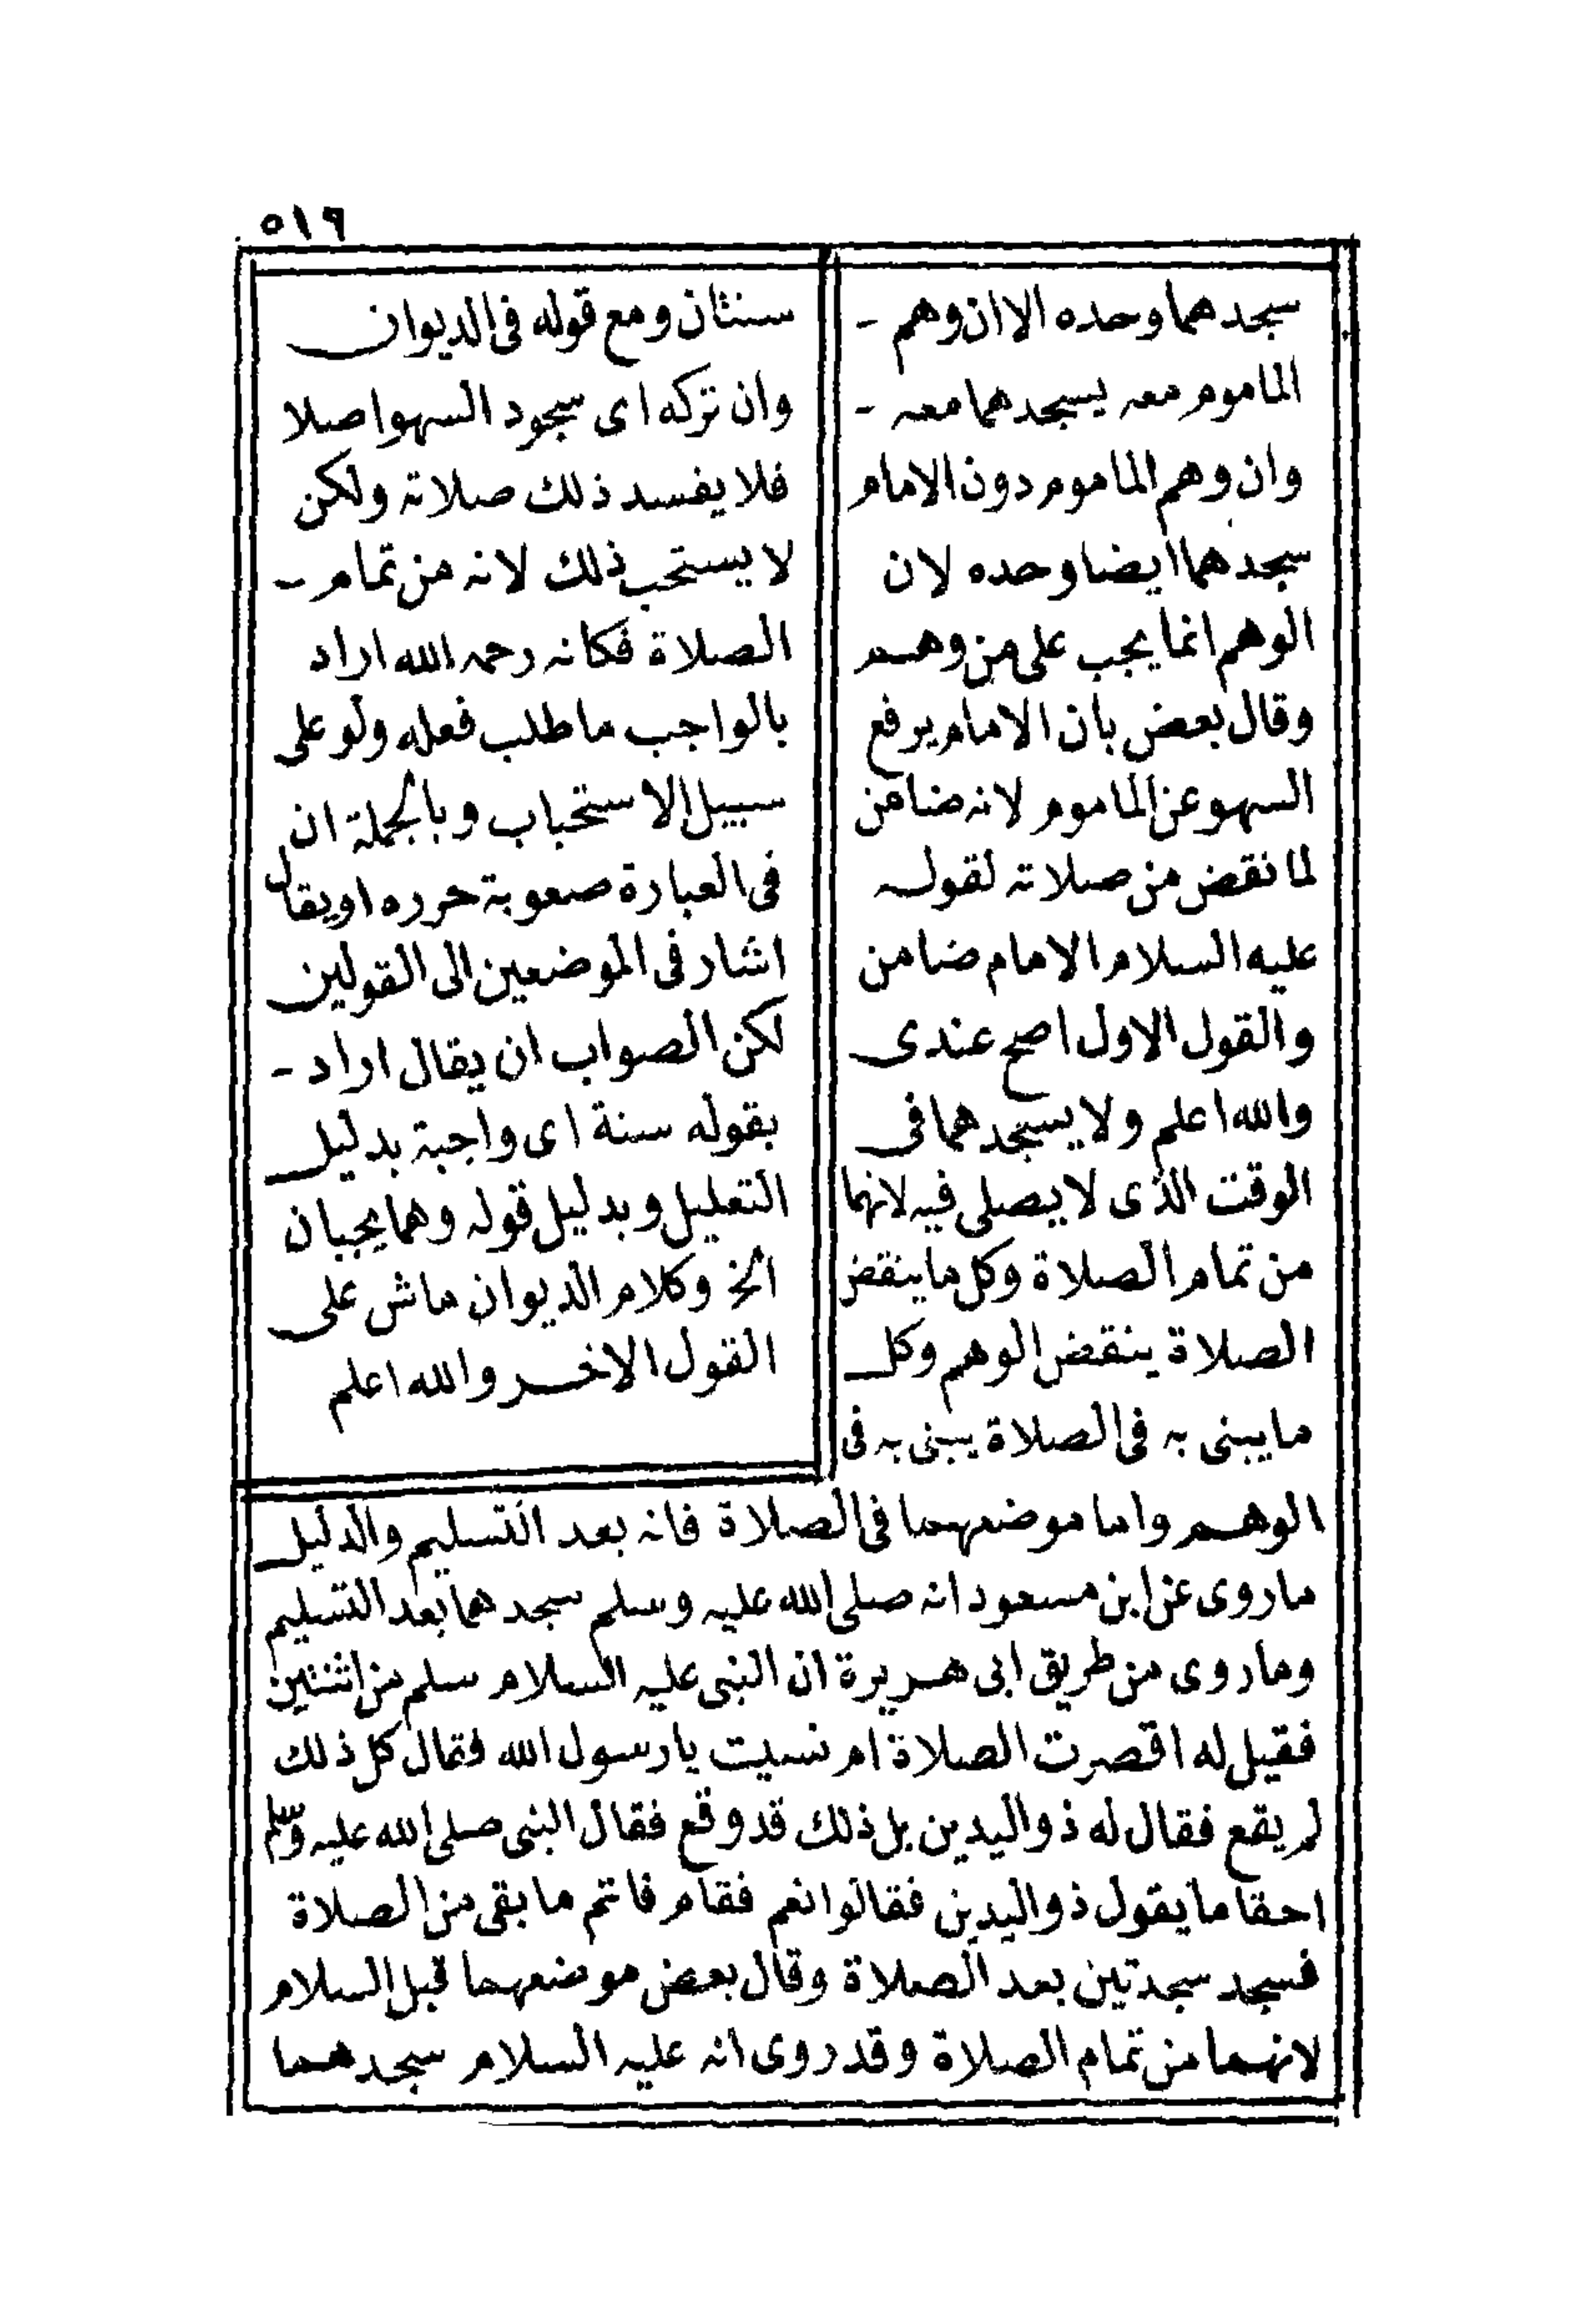 ٥١٩
سجدهما وحده الا ان وهم -
الماموم معه يسجدهما معه -
وان وهم الماموم دون الامام
سجدهما ايضا وحده لان
الوهم انما يجب على من وهم
وقال بعض بان الامام يرفع
السهو عن الماموم لانه ضامن
لما نقض من صلاته لقوله
عليه السلام الامام ضامن
والقول الاول اصح عندى
والله اعلم ولا يسجدهما فى
الوقت الذى لا يصلى فيه لانهما
من تمام الصلاة وكل ما ينقض
الصلاة ينقض الوهم وكل
ما يبنى به فى الصلاة يبنى به فى
سنتان ومع قوله فى الديوان
وان تركه اى سجود السهو اصلا
فلا يفسد ذلك صلاته ولكن
لا يستحب ذلك لانه من تمام -
الصلاة فكانه رحمه الله اراد
بالواجب ما طلب فعله ولو على
سبيل الاستحباب وبالجملة ان
فى العبارة صعوبة حرره او يقال
اشار فى الموضعين الى القولين
لكن الصواب ان يقال اراد -
بقوله سنة اى واجبة بدليل
التعليل وبدليل قوله وهما يجبان
الخ وكلام الديوان ماش على
القول الاخر والله اعلم
الوهم واما موضعهما فى الصلاة فانه بعد التسليم والدليل
ما روى عن ابن مسعود انه صلى الله عليه وسلم سجدهما بعد التسليم
وما روى من طريق ابى هريرة ان النبى عليه السلام سلم من اثنتين
فقيل له اقصرت الصلاة ام نسيت يا رسول الله فقال كل ذلك
لم يقع فقال له ذو اليدين بل ذلك قد وقع فقال النبى صلى الله عليه وسلم
احقا ما يقول ذو اليدين فقالوا نعم فقام فاتم ما بقى من الصلاة
فسجد سجدتين بعد الصلاة وقال بعض موضعهما قبل السلام
لانهما من تمام الصلاة وقد روى انه عليه السلام سجدهما